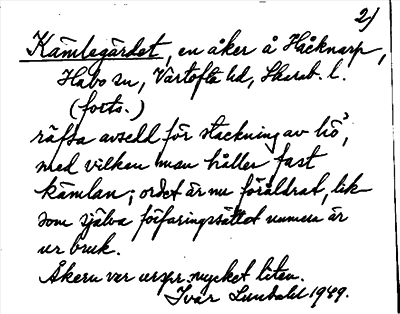 2)
Kämlegärdet, en åker å Håknarp,
Habo sn, Vartofta hd, Skarab. l.
(forts.)
räfsa avsedd för stackning av hö',
med vilken man håller fast
kämlan; ordet är nu föråldrat, lik-
som själva förfaringssättet numera är
ur bruk.
Åkern var urspr. mycket liten.
Ivar Lundahl 1949.